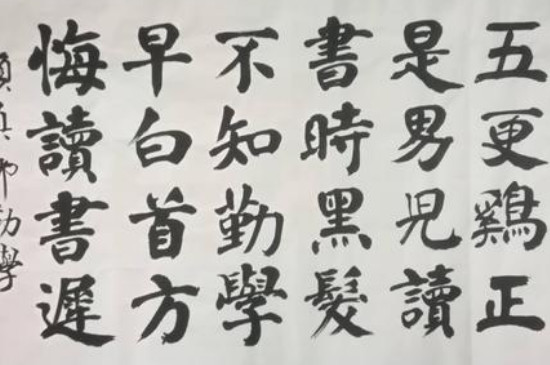 五更鷄正
是男兒讀
書時黑髮
不知勤學
早白首方
悔讀書遲
顔真卿勸學